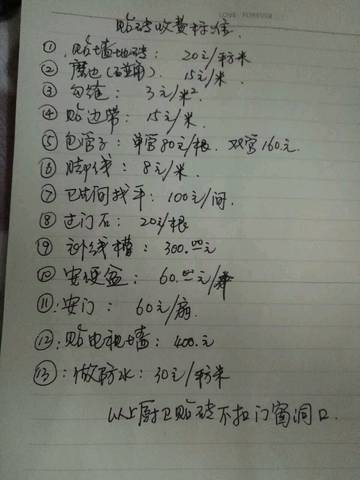 LOVE FOREVER
贴砖收费标准
① 贴墙地砖: 20元/平方米
② 磨边(45角) 15元/米
③ 勾缝: 3元/米²
④ 贴边带: 15元/米
⑤ 包管子: 单管80元/根. 双管160元.
⑥ 脚线: 8元/米.
⑦ 卫生间找平: 100元/间.
⑧ 过门石: 20元/根
⑨ 补线槽: 300.00元
⑩ 安便盆: 60.00元/
⑪: 安门: 60元/扇.
⑫: 贴电视墙: 400.元
⑬: 做防水: 30元/平方米
以上厨卫贴砖不扣门窗洞口.